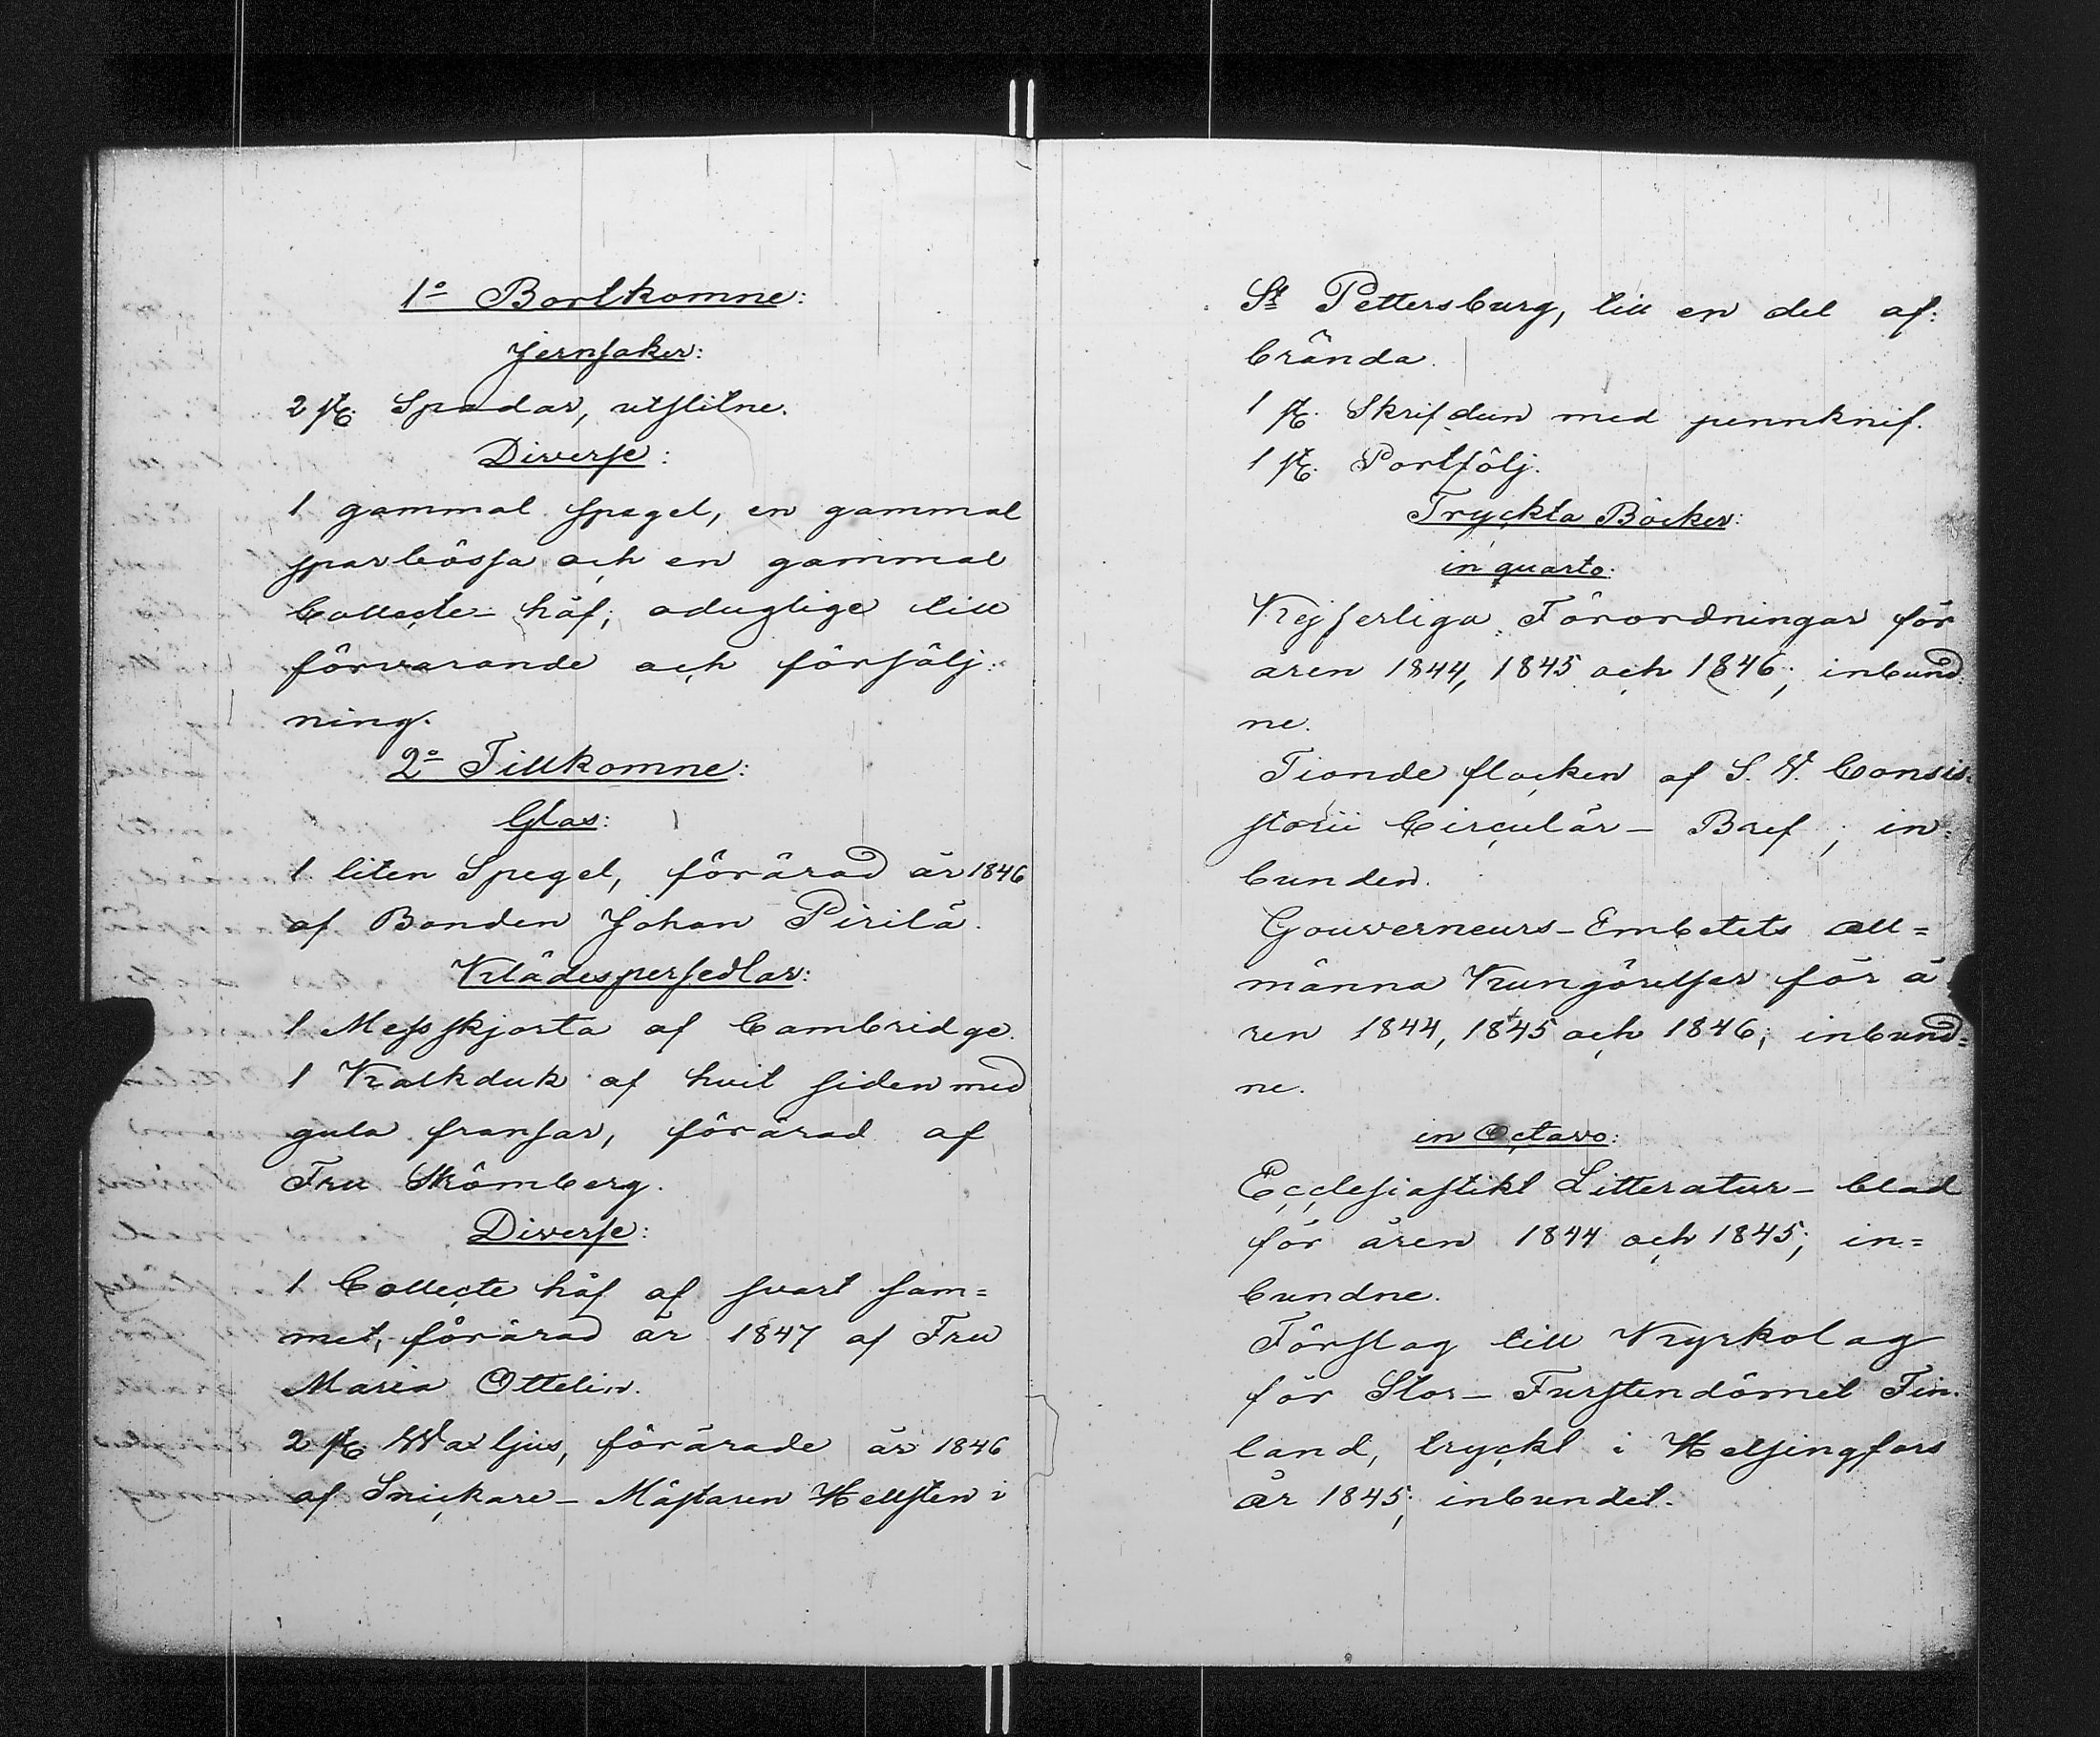 1o Bortkomne:
Jernsaker:
2 st. Spadar, utslitne.
Diverse:
1 gammal spegel, en gammal
sparbössa och en gammal
Collecte-håf; oduglige till
förvarande och försälj:
ning.
2o Tillkomne:
Glas:
1 liten Spegel, förärad år 1846
af Bonden Johan Pirilä.
Klädespersedlar:
1 Messskjorta af Cambridge.
1 Kalkduk af hvit siden med
gula fransar, förärad af
Fru Strömberg.
Diverse:
1 Collecte håf af svart sam=
met, förärad år 1847 af Fru
Maria Ottelin.
2 st. Waxljus, förärade år 1846
af Snickare-Mästaren Hellsten i
St Pettersburg, till en del af:
brända.
1 st. Skrifdun med pennknif.
1 st. Portfölj.
Tryckta Böcker:
in quarto:
Kejserliga Förordningar för
åren 1844, 1845 och 1846; inbund:
ne.
Tionde flocken af S. V. Consis:
storii Circulär-Bref; in:
bunden.
Gouverneurs-Embetets all=
männa Kungörelser för å
ren 1844, 1845 och 1846; inbund=
ne.
in Octavo:
Ecclesiastikt Litteratur-blad
för åren 1844 och 1845; in=
bundne.
Förslag till Kyrkolag
för Stor-Furstendömet Fin:
land, tryckt i Helsingfors
år 1845; inbundet.